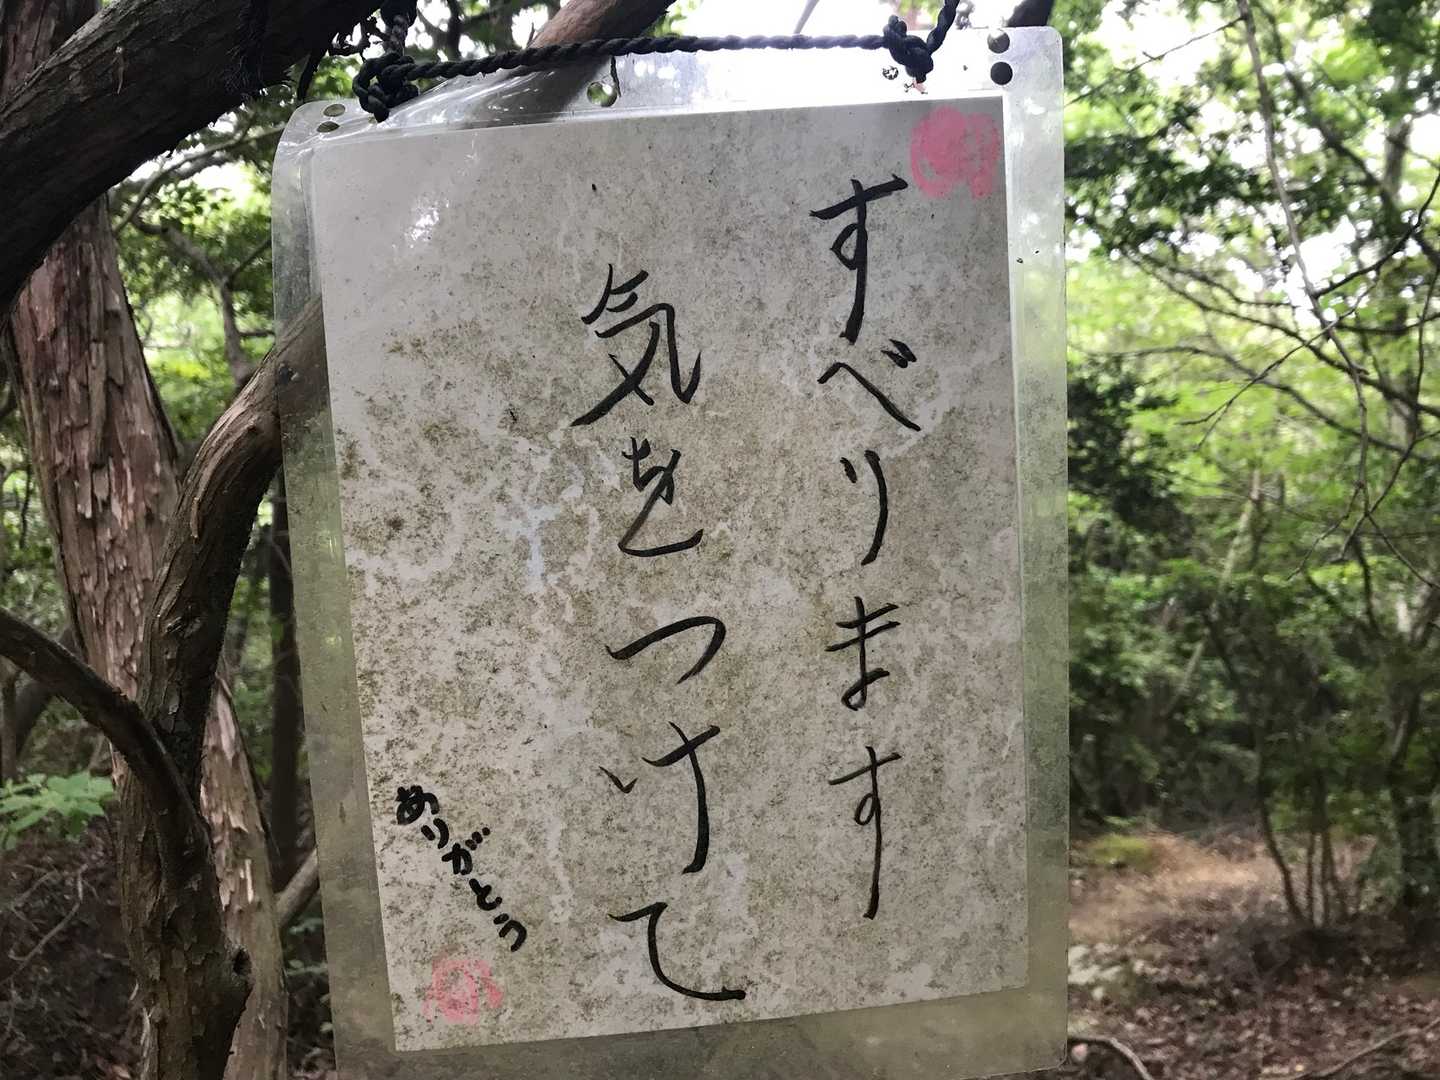 すべります
気をつけて
ありがとう